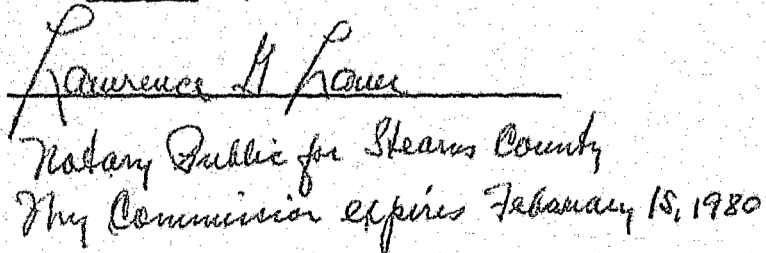 Lawrence H Lauer
Notary Public for Stearns County
My Commission expires February 15, 1980